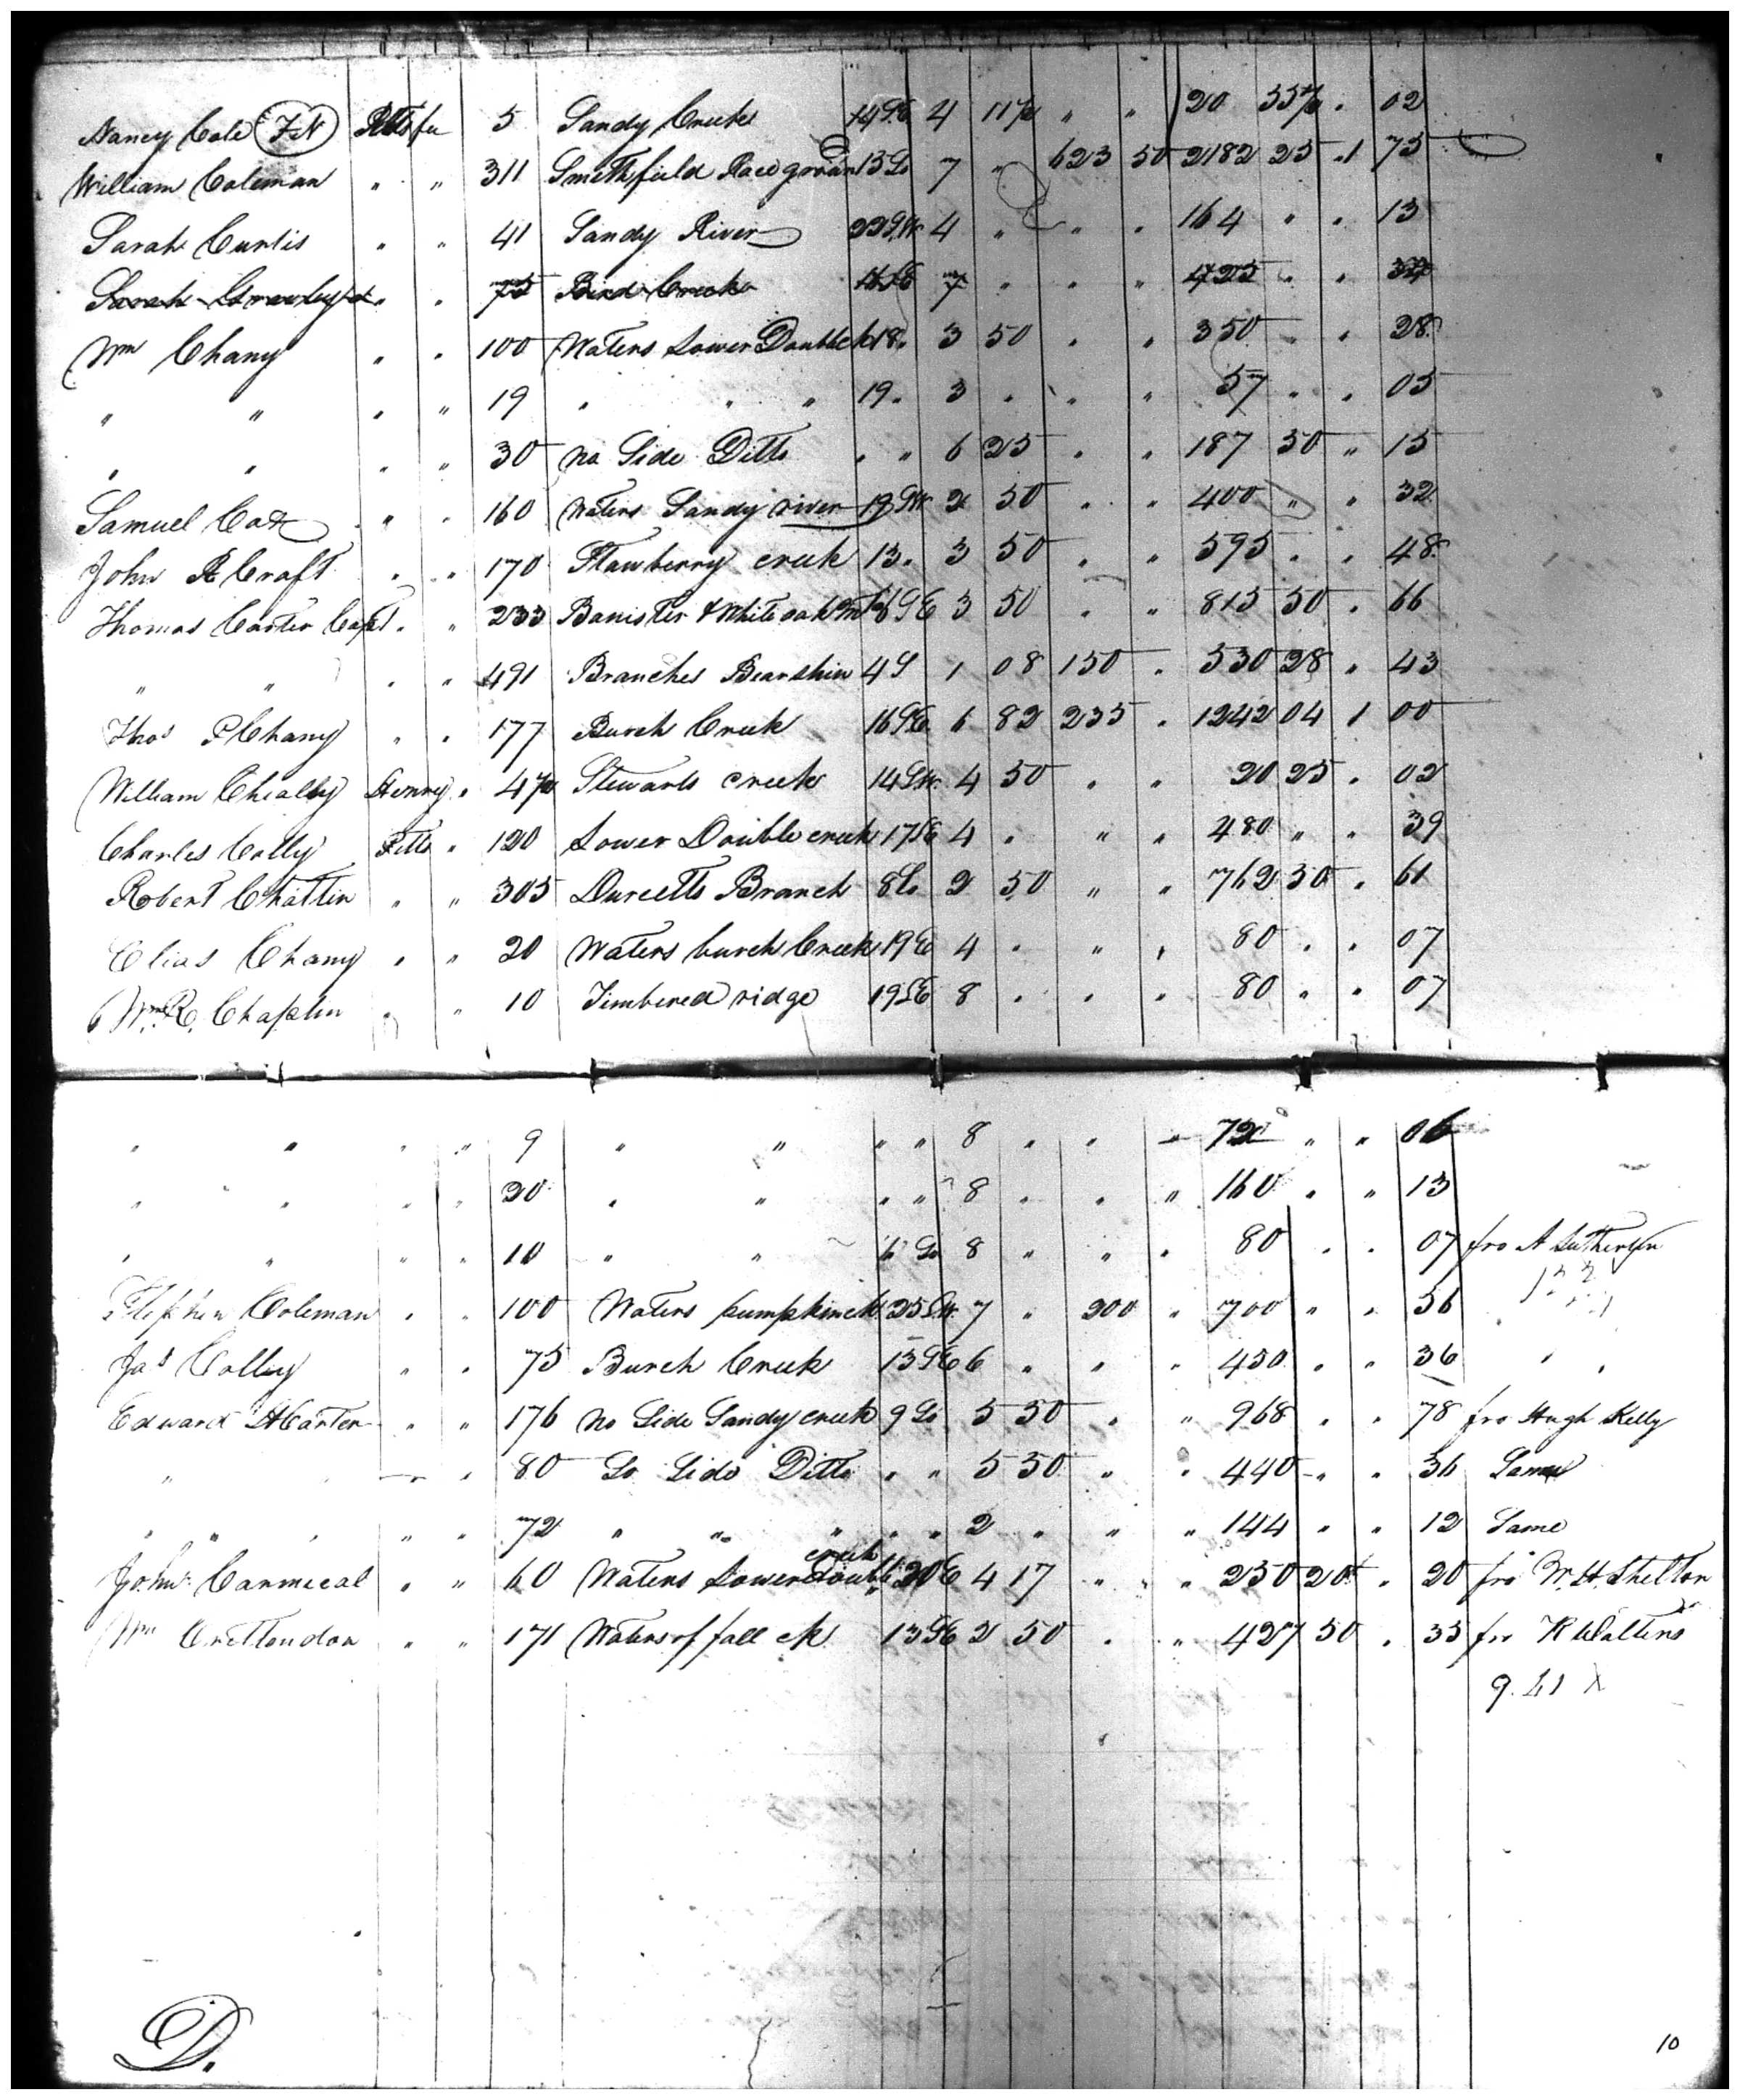 Nancy Cole FN Pitts fee 5 Sandy Creek 14 SE 4 11½ " " 20 55½ . 02
William Coleman " " 311 Smithfield Race ground 13 So 7 " 623 50 2182 25 1 75
Sarah Curtis " " 41 Sandy River 22 SW 4 " " " 164 " " 13
Sarah " 75 Bird Creek 16 SE 7 " " " 425 " " 34
Wm Chany " " 100 Waters Lower Double ck 18 " 3 50 " " 350 " " 28
" " " " 19 " " " 19 " 3 " " " 57 " " 05
" " " " 30 no Side Ditto " " 6 25 " " 187 50 " 15
Samuel Cox " " 160 Waters Sandy river 19 SW 2 50 " " 400 " " 32
John A Craft " " 170 Stawberry creek 13 " 3 50 " " 595 " " 48
Thomas Carter Capt " " 233 Banister & White oak Mt 16 SE 3 50 " " 815 50 " 66
" " " " 491 Branches Bearskin 4 S 1 08 150 " 530 28 " 43
Thos P Chany " " 177 Burch Creek 16 SE 6 82 235 " 1242 04 1 00
William Henry " 4½ Stewarts creek 14 SW 4 50 " " 20 25 " 02
Charles Colly Pitts " 120 Lower Double creek 17 SE 4 " " " 480 " " 39
Robert Chattin " " 305 Branch 8 So 2 50 " " 762 50 " 61
Elias Chany " " 20 Waters burch Creek 19 E 4 " " " 80 " " 07
Wm R. Chaplin " " 10 Timbered ridge 19 SE 8 " " " 80 " " 07
" " " " 9 " " " " 8 " " " 72 " " 06
" " " " 20 " " " " 8 " " " 160 " " 13
" " " " 10 " " 6 So 8 " " " 80 " " 07 fro A Sutherlin
Stephen Coleman " " 100 Waters pumpkin ck 25 SW 7 " 200 " 700 " " 56
Jas Colley " " 75 Burch Creek 13 SE 6 " " " 450 " " 36
Edward H Carter " " 176 no Side Sandy creek 9 So 5 50 " " 968 " " 78 fro Hugh Kelly
" " " 80 So Side Ditto " " 5 50 " " 440 " " 36 Same
" " " " 72 " " " " " 2 " " " 144 " " 12 Same
John Carmical " " 60 Waters Lower Double creek 20 E 4 17 " " 250 20 " 20 fro W. H. Shelton
Wm Crettendon " " 171 Waters of fall ck 13 SE 2 50 " " 427 50 " 35 fro R Walters
9.61
D.
10